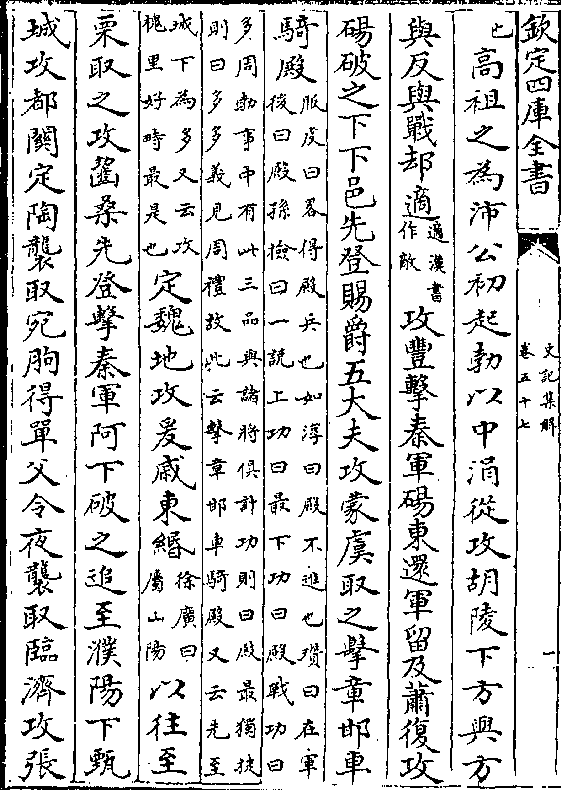 欽定四庫全書
史記集解
卷五十七
一
也
高祖之為沛公初起勃以中涓從攻胡陵下方與方
與反與戰却適
適漢書
作敵
攻豐擊秦軍碭東還軍留及蕭復攻
碭破之下下邑先登賜爵五大夫攻蒙虞取之擊章邯車
騎殿
服虔曰畧得殿兵也如淳曰殿不進也瓚曰在軍
後曰殿孫檢曰一說上功曰最下功曰殿戰功曰
多周勃事中有此三品與諸將俱計功則曰殿最獨捷
則曰多多義見周禮故此云擊章邯車騎殿又云先至
城下為多又云攻
槐里好時最是也
定魏地攻爰戚東緡
徐廣曰
屬山陽
以往至
栗取之攻齧桑先登擊秦軍阿下破之追至濮陽下甄
城攻都關定陶襲取宛朐得單父令夜襲取臨濟攻張